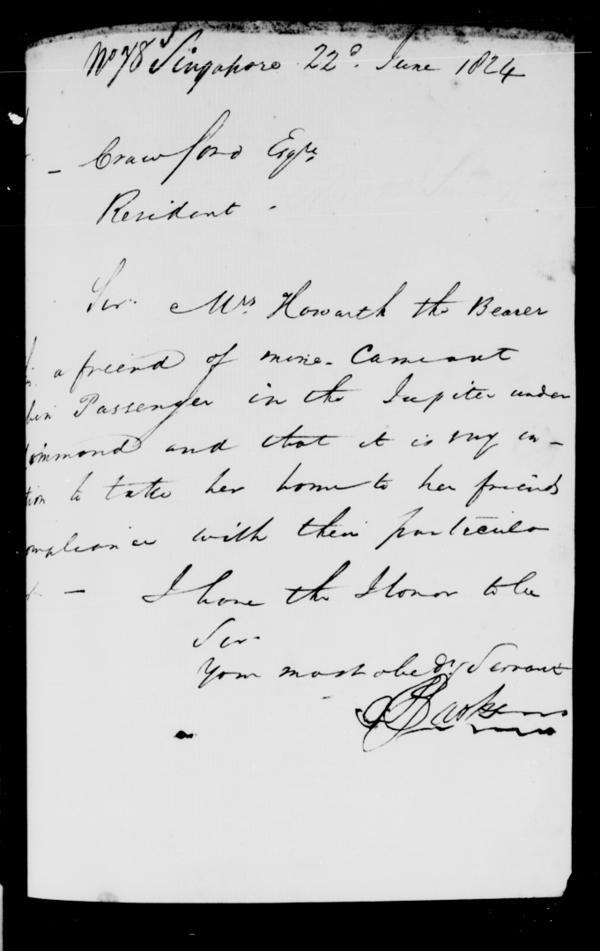 No 78 Singapore 22d. June 1824
- Crawford Esqre
Resident -
Sir. Mrs Howarth the Bearer
a friend of mine - Came out
Passenger in the Jupiter under
ommand and that it is my in-
tion to take her home to her friends
ompliance with their particula
- I have the Honor to be
Sir.
Your most obedt. Servant